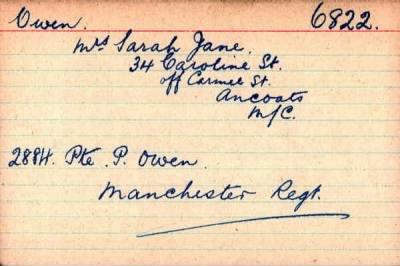 Owen. 6822.
Mrs Sarah Jane.
34 Caroline St.
off Carmel St.
Ancoats
M/C.
2884. Pte. P. Owen.
Manchester Regt.